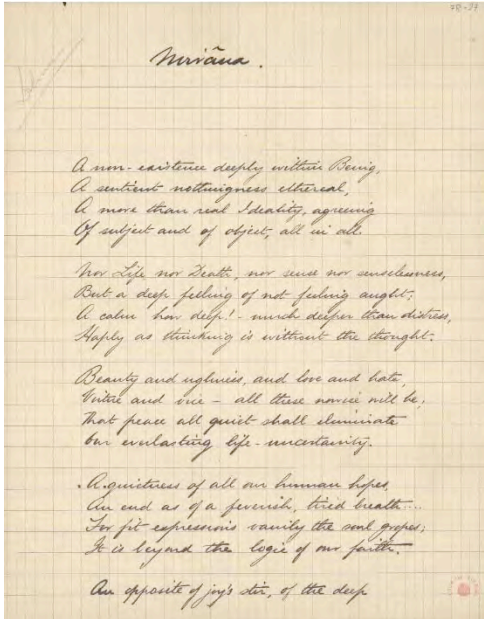 Nirvãna.
A non-existence deeply within Being,
A sentient nothingness ethereal,
A more than real Ideality, agreeing
Of subject and of object, all in all.
Nor Life nor Death, nor sense nor senselessness,
But a deep feeling of not feeling aught;
A calm how deep! - much deeper than distress,
Haply as thinking is without the thought.
Beauty and ugliness, and love and hate,
Virtue and vice - all these nowise will be;
That peace all quiet shall eliminate
Our everlasting life-uncertainty.
A quietness of all our human hopes,
An end as of a feverish, tired breath...
For fit expressions vainly the soul gropes;
It is beyond the logic of our faith.
An opposite of joy's stir, of the deep